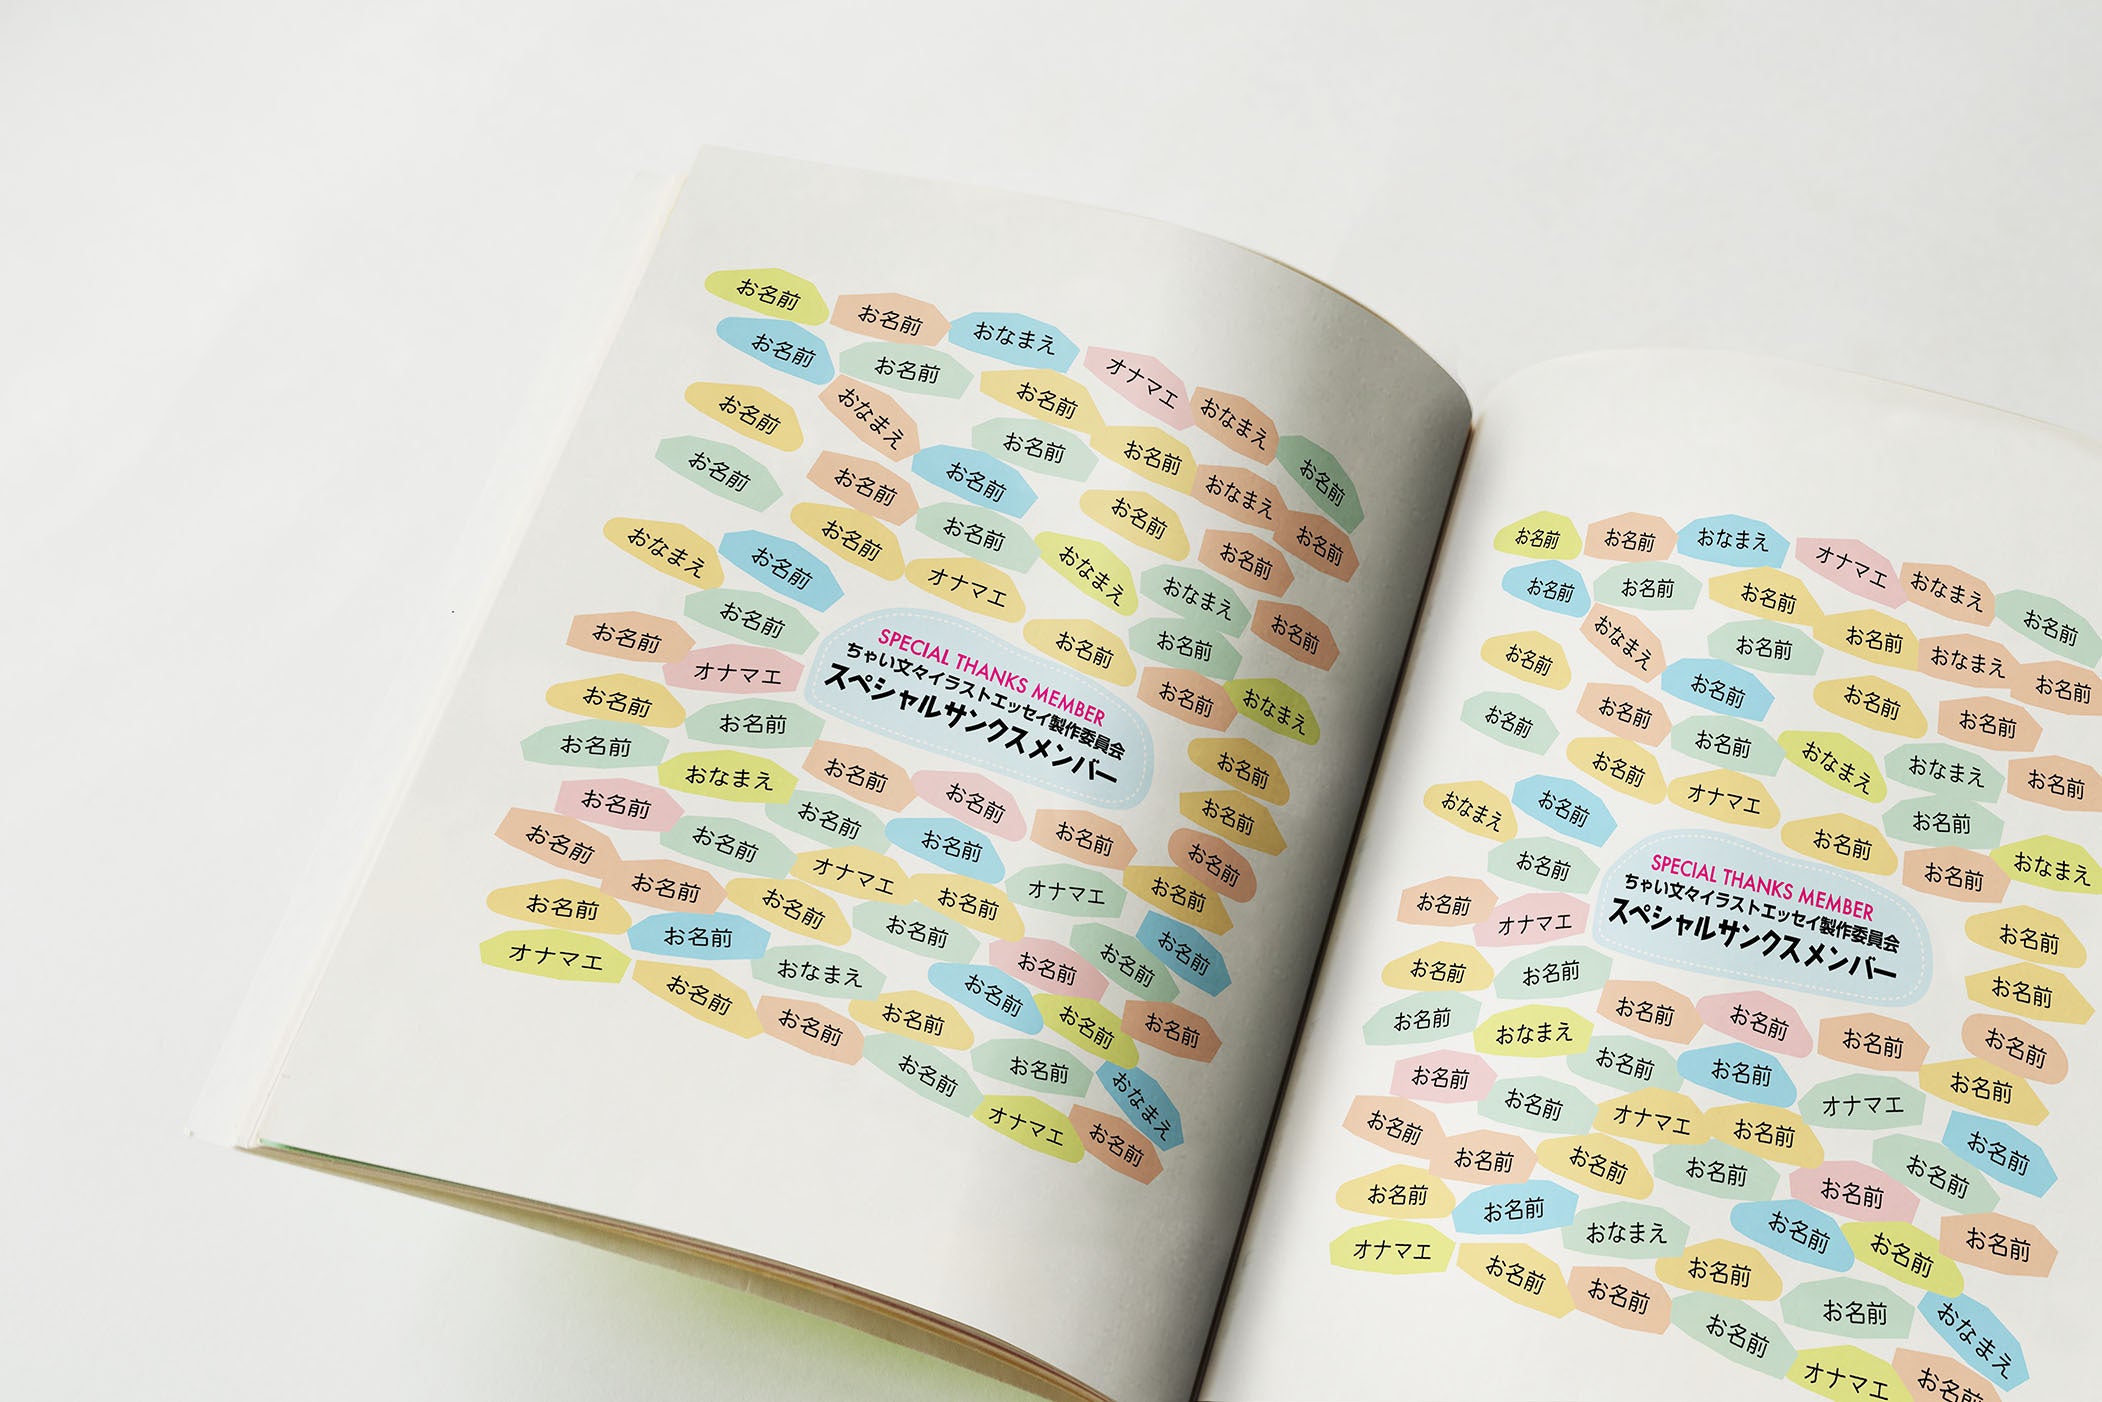 お名前
お名前
おなまえ
オナマエ
おなまえ
お名前
お名前
お名前
お名前
お名前
おなまえ
お名前
お名前
おなまえ
お名前
お名前
お名前
お名前
お名前
お名前
お名前
お名前
おなまえ
おなまえ
おなまえ
お名前
お名前
オナマエ
お名前
お名前
お名前
お名前
オナマエ
お名前
おなまえ
SPECIAL THANKS MEMBER
ちゃい文々イラストエッセイ製作委員会
スペシャルサンクスメンバー
お名前
お名前
お名前
お名前
おなまえ
お名前
お名前
お名前
お名前
お名前
お名前
お名前
お名前
お名前
お名前
お名前
オナマエ
お名前
オナマエ
お名前
お名前
お名前
お名前
お名前
お名前
お名前
お名前
オナマエ
お名前
おなまえ
お名前
お名前
お名前
お名前
お名前
お名前
おなまえ
お名前
オナマエ
お名前
お名前
お名前
おなまえ
オナマエ
おなまえ
お名前
お名前
お名前
お名前
お名前
おなまえ
お名前
お名前
おなまえ
お名前
お名前
お名前
お名前
お名前
お名前
お名前
おなまえ
おなまえ
お名前
おなまえ
お名前
お名前
オナマエ
お名前
お名前
お名前
お名前
オナマエ
お名前
おなまえ
SPECIAL THANKS MEMBER
ちゃい文々イラストエッセイ製作委員会
スペシャルサンクスメンバー
お名前
お名前
お名前
お名前
おなまえ
お名前
お名前
お名前
お名前
お名前
お名前
お名前
お名前
お名前
お名前
お名前
オナマエ
お名前
オナマエ
お名前
お名前
お名前
お名前
お名前
お名前
お名前
お名前
オナマエ
お名前
おなまえ
お名前
お名前
お名前
お名前
お名前
お名前
おなまえ
お名前
オナマエ
お名前